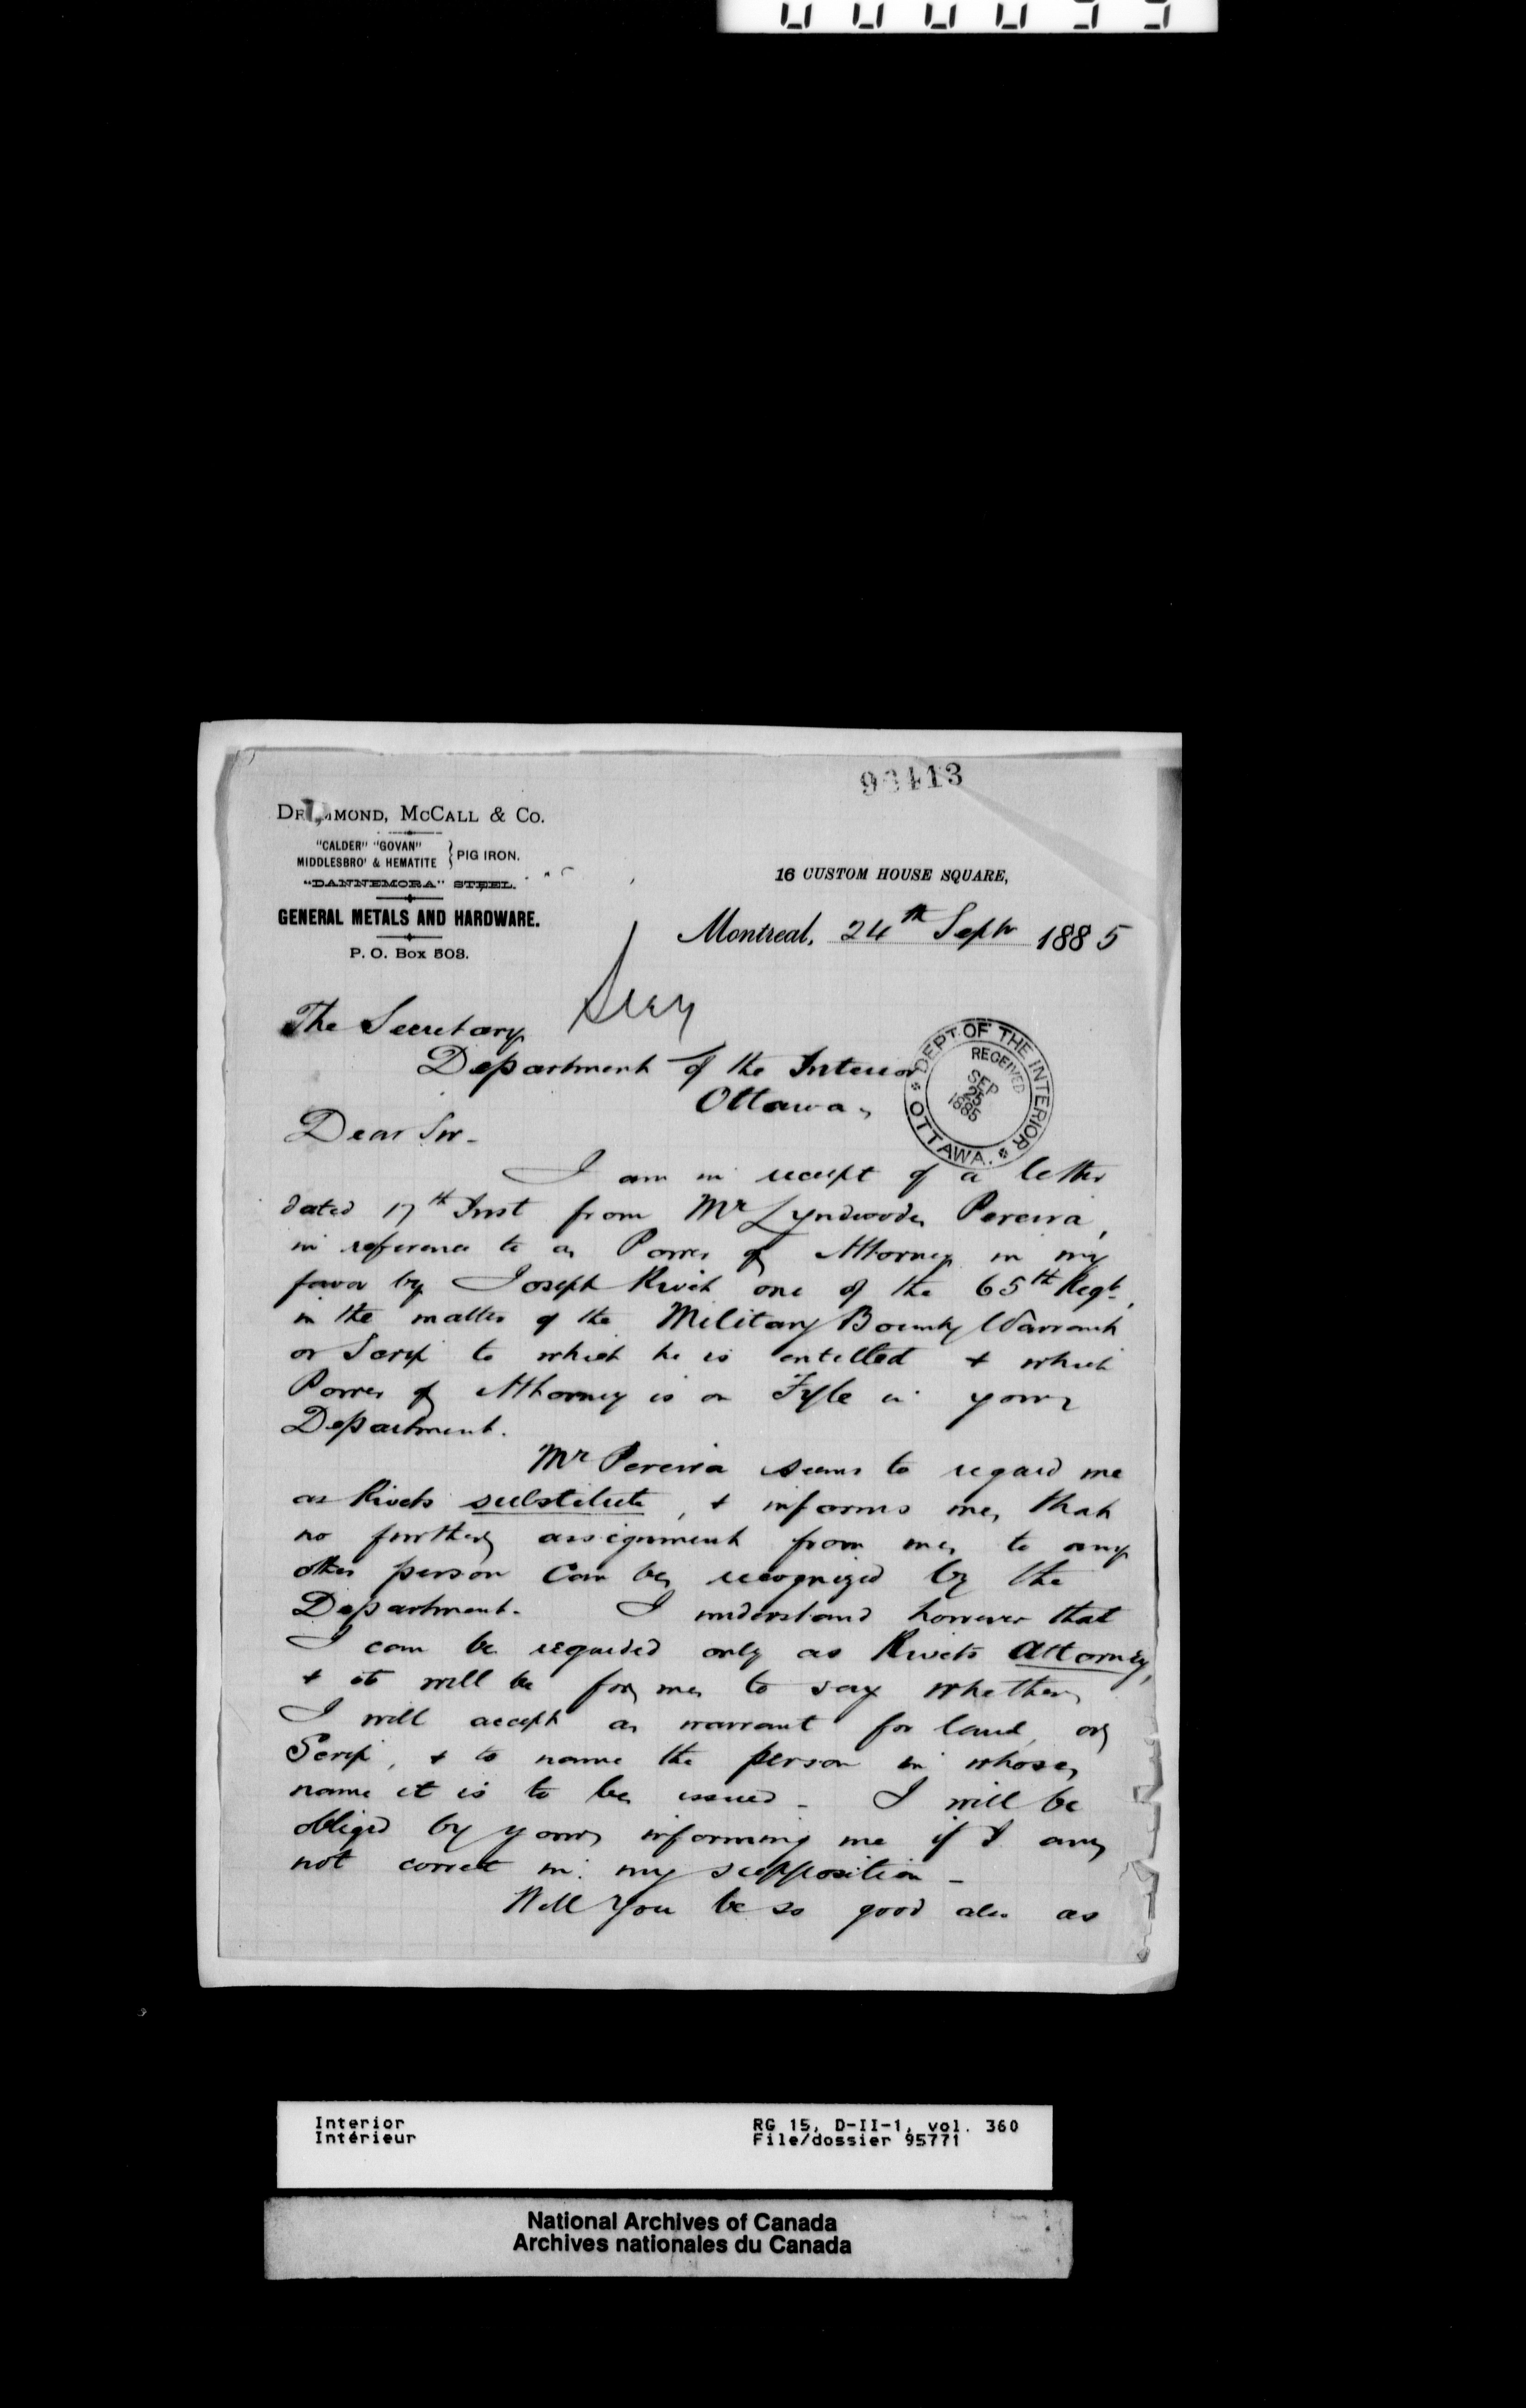 DRUMMOND, MCCALL & Co.
"CALDER" "GOVAN"
MIDDLESBRO' & HEMATITE } PIG IRON.
"DANNEMORA" STEEL.
GENERAL METALS AND HARDWARE.
P. O. Box 503.
16 CUSTOM HOUSE SQUARE,
Montreal, 24th Septr 1885
The Secretary
Department of the Interior
Ottawa,
DEPT. OF THE INTERIOR
RECEIVED
SEP
25
1885
OTTAWA.
Dear Sir -
I am in receipt of a letter
dated 17th Inst from Mr Lyndwoode Pereira,
in reference to a Power of Attorney in my
favor by Joseph Rivet one of the 65th Regt,
in the matter of the Military Bounty Warrant
or Scrip to which he is entitled & which
Power of Attorney is on Fyle in your
Department.
Mr Pereira seems to regard me
as Rivets substitute, & informs me, that
no further assignment from me, to any
other person can be recognized by the
Department. I understand however that
I can be regarded only as Rivets Attorney,
& it will be for me to say whether
I will accept a warrant for land, or
Scrip, & to name the person in whose
name it is to be issued - I will be
obliged by your informing me if I am
not correct in my supposition -
Will You be so good also as
Interior
Intérieur
RG 15, D-II-1, vol. 360
File/dossier 95771
National Archives of Canada
Archives nationales du Canada